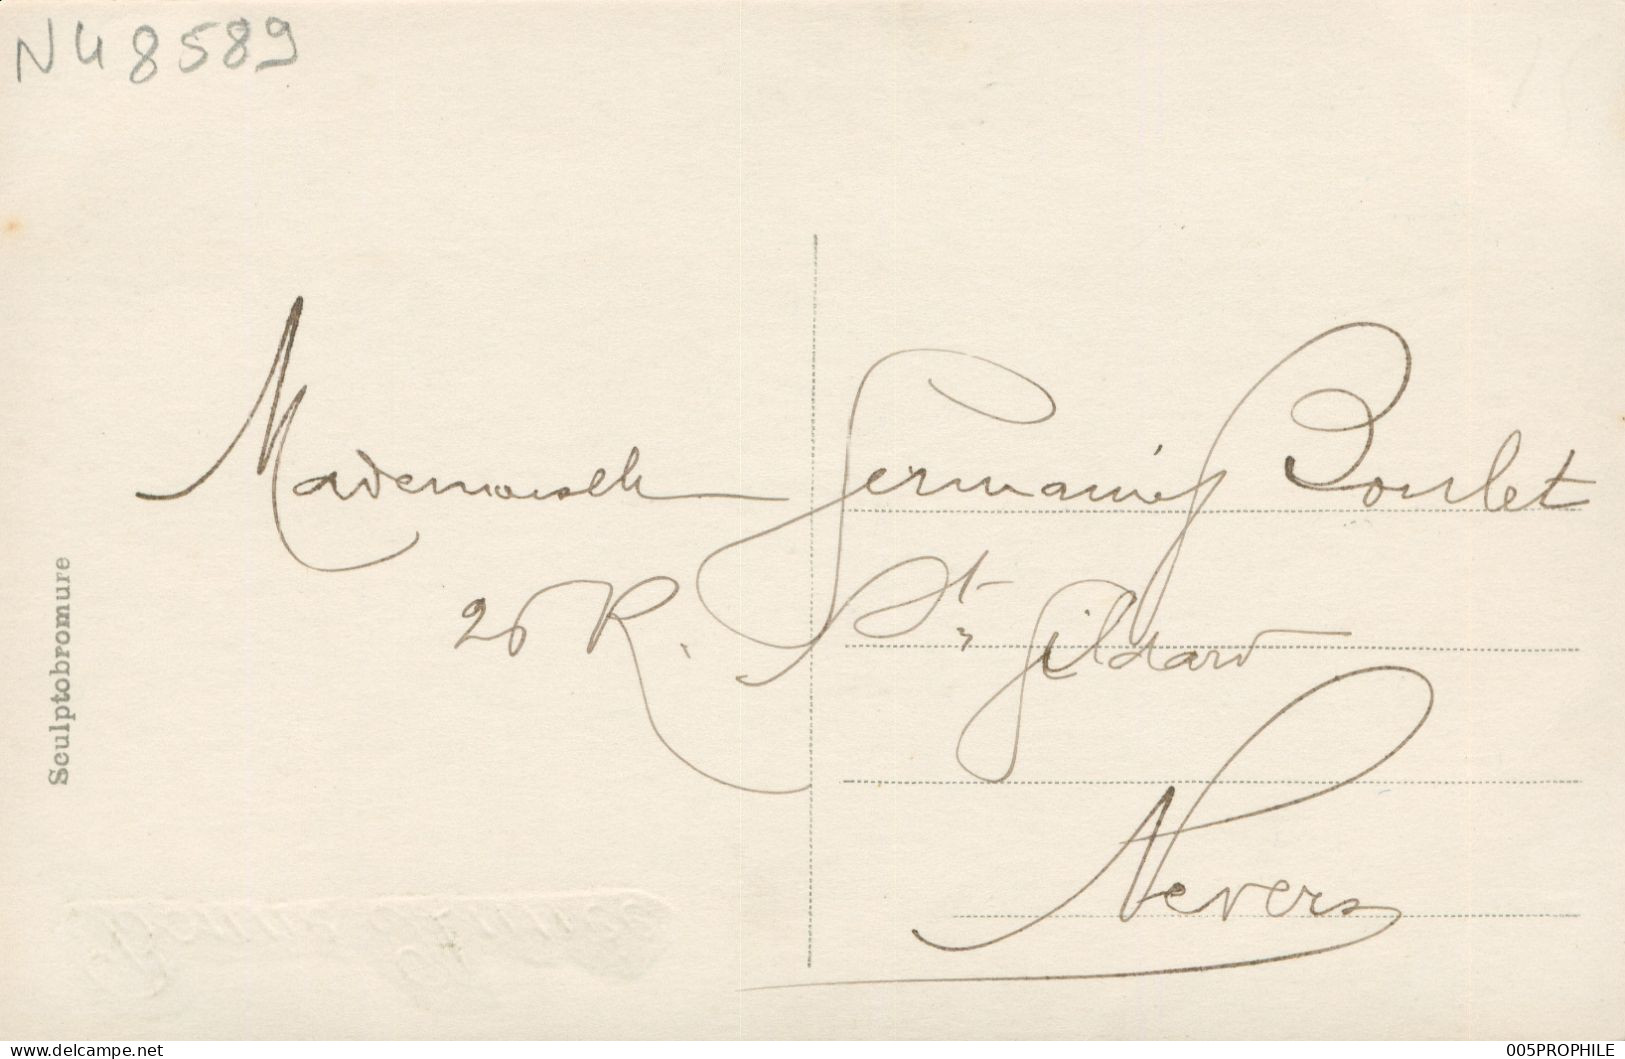 N48589
Mademoiselle Germaine Boulet
26 R. St Gildard
Nevers
Sculptobromure
www.delcampe.net
005PROPHILE